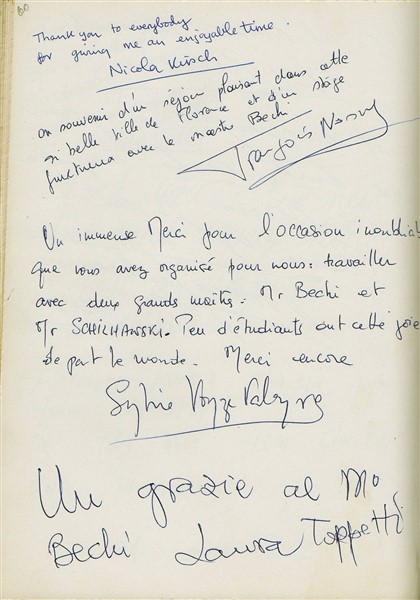 60
Thank you to everybody
for giving me an enjoyable time.
Nicola Kirsch
en souvenir d'un séjour plaisant dans cette
si belle ville de Florence et d'un stage
fructueux avec le maestro Bechi
François
Un immense Merci pour l'occasion inoubliab
que vous avez organisé pour nous: travailler
avec deux grands maîtres. Mr Bechi et
Mr SCHILHAWSKI. Peu d'étudiants ont cette joie
de part le monde. Merci encore
Sylvie
Un grazie al Mo
Bechi Laura Toffetti